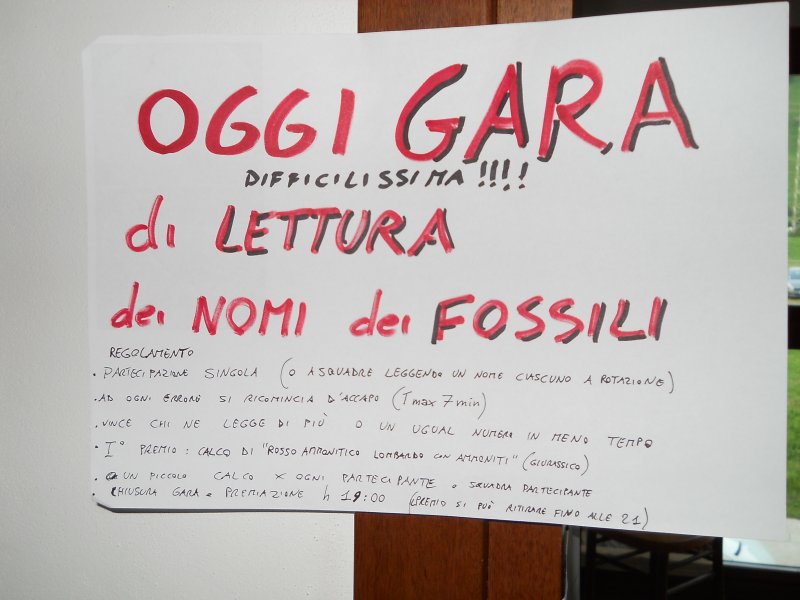 OGGI GARA
DIFFICILISSIMA !!!!
di LETTURA
dei NOMI dei FOSSILI
REGOLAMENTO
• PARTECIPAZIONE SINGOLA (O A SQUADRE LEGGENDO UN NOME CIASCUNO A ROTAZIONE)
• AD OGNI ERRORE SI RICOMINCIA D'ACCAPO (Tmax 7 min)
• VINCE CHI NE LEGGE DI PIÙ O UN UGUAL NUMERO IN MENO TEMPO
• I° PREMIO: CALCO DI "ROSSO AMMONITICO LOMBARDO CON AMMONITI" (GIURASSICO)
• UN PICCOLO CALCO X OGNI PARTECIPANTE O SQUADRA PARTECIPANTE
• CHIUSURA GARA e PREMIAZIONE h 19:00 (PREMIO SI PUÒ RITIRARE FINO ALLE 21)